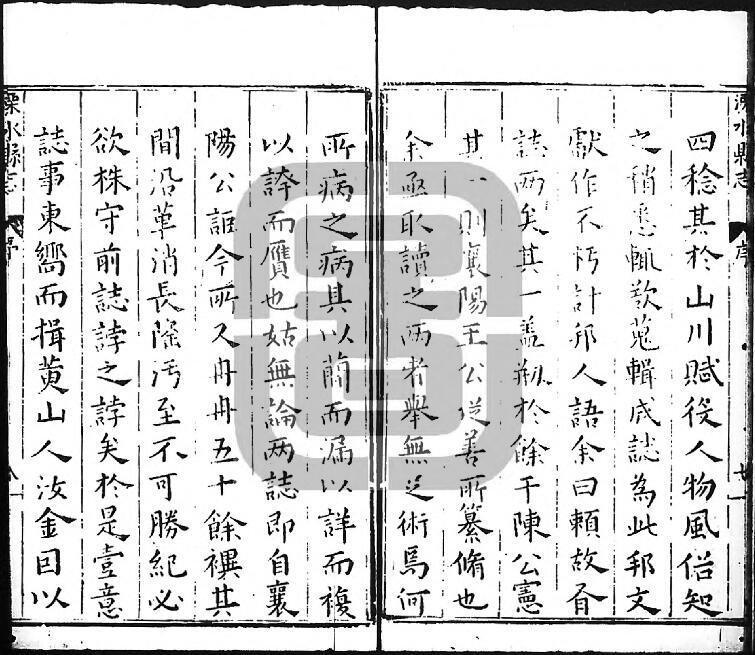 溧水縣志
序
四稔其於山川賦役人物風俗知
之稍悉輒欲蒐輯成誌為此邦文
獻作不朽計邦人語余曰賴故有
誌两矣其一盖刱於餘干陳公憲
其一則襄陽王公從善所纂脩也
余亟取讀之两者舉無足術焉何
所病之病其以簡而漏以詳而複
以誇而贋也姑無論两誌即自襄
陽公詎今所又冉冉五十餘禩其
間沿革消長隆汚至不可勝紀必
欲株守前誌誖之誖矣於是壹意
誌事東嚮而揖黄山人汝金目以
溧水縣志
序